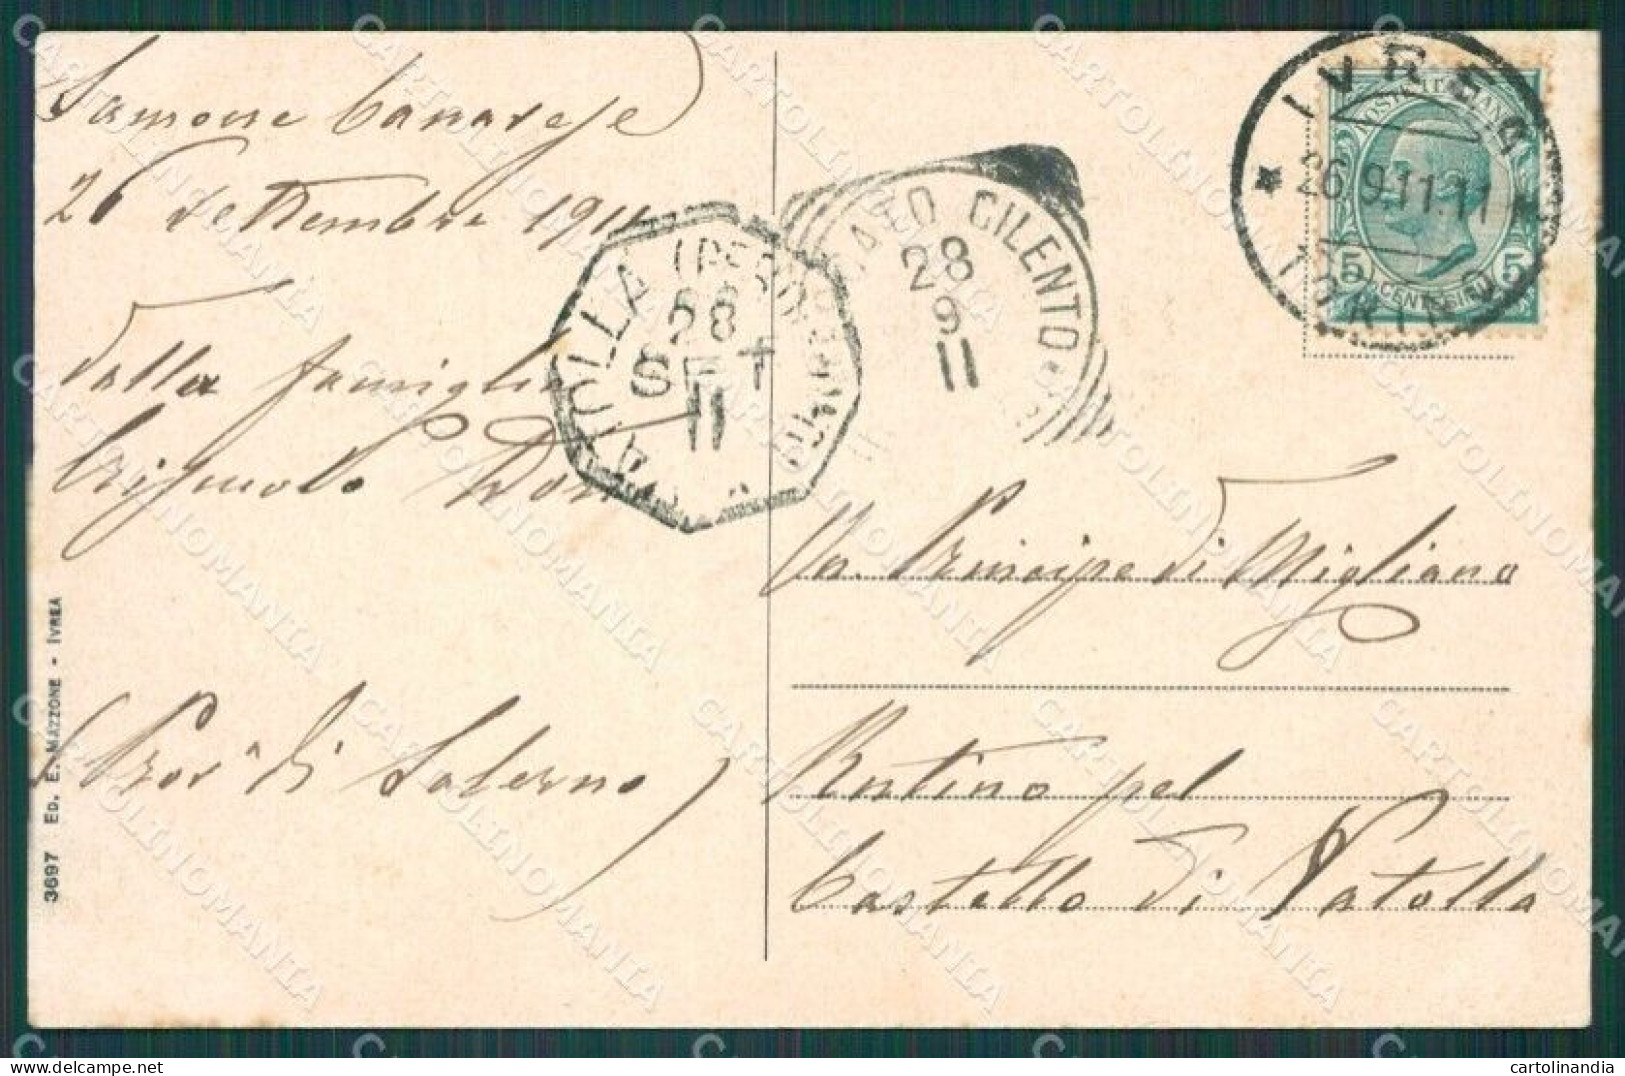 Samone Canavese
26 Settembre 1911
Dalla famiglia
(Prov.ª di Salerno)
3697 ED. E. MAZZONE - IVREA
IVREA
26.9.11.11
TORINO
POSTE ITALIANE
5 CENTESIMI 5
CILENTO
28
9
11
28
SET
11
Principe di Migliano
Rutino pel
Castello di Patolla
CARTOLINOMANIA
cartolinandia